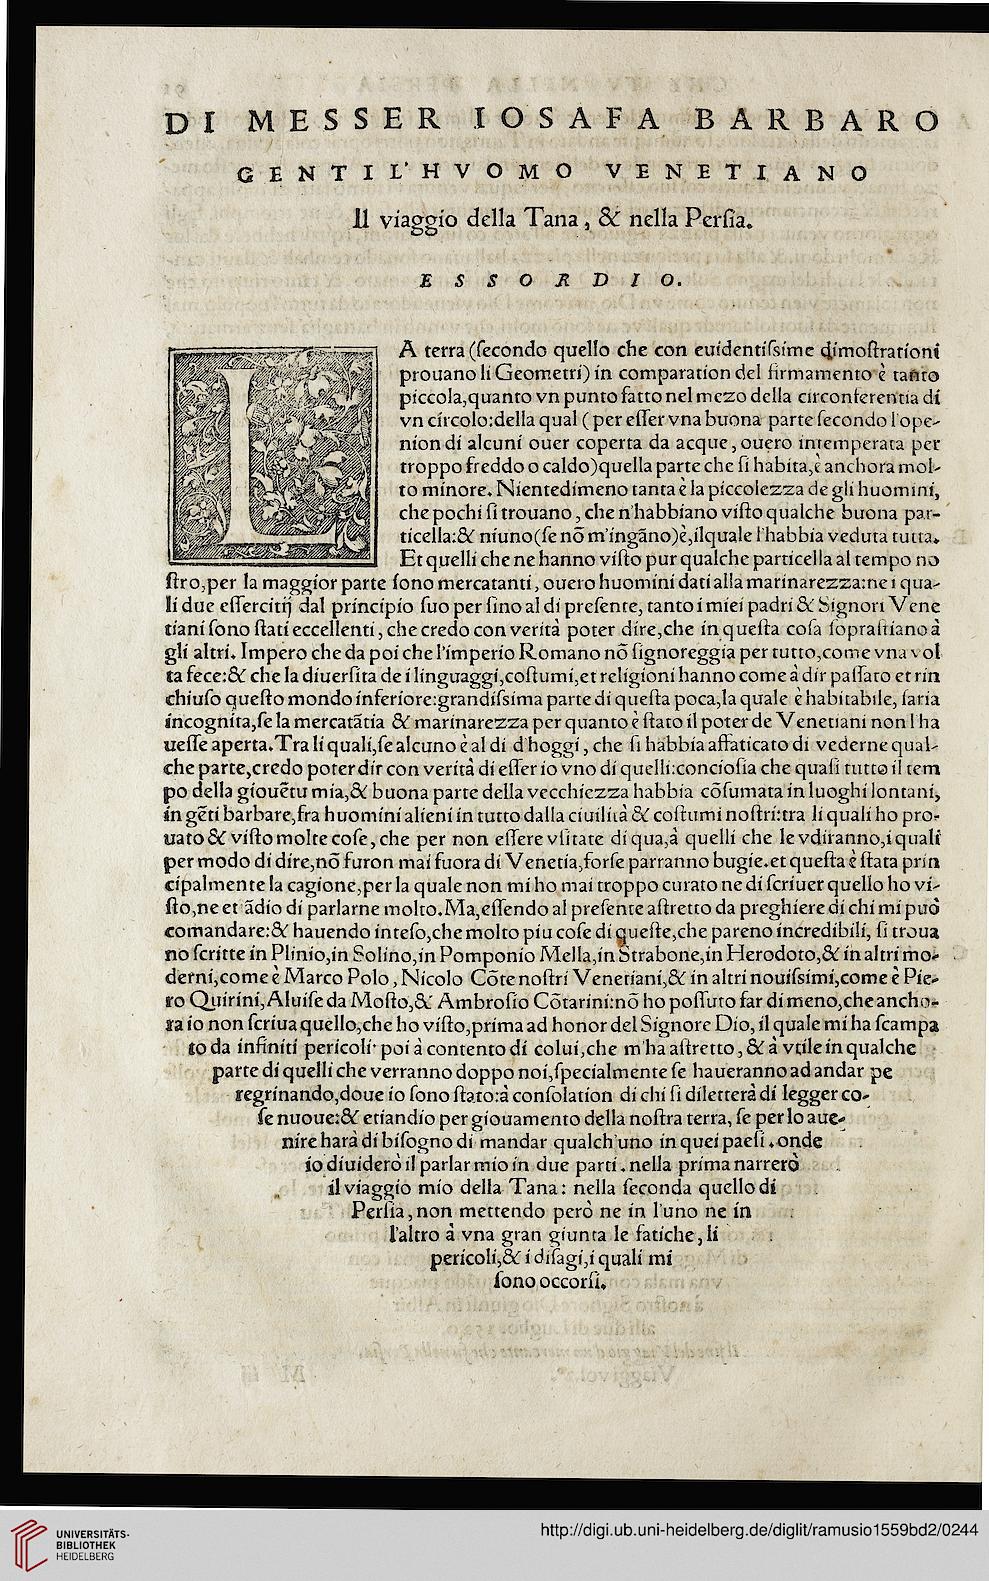 DI MESSER IOSAFA BARBARO
GENTIL'HVOMO VENETIANO
Il viaggio della Tana, & nella Perſia.
ESSORDIO.
LA terra (ſecondo quello che con euidentiſsime dimoſtrationi
prouano li Geometri) in comparation del firmamento è tanto
piccola,quanto vn punto fatto nel mezo della circonferentia di
vn circolo:della qual ( per eſſer vna buona parte ſecondo l'ope-
nion di alcuni ouer coperta da acque, ouero intemperata per
troppo freddo o caldo)quella parte che ſi habita,è anchora mol-
to minore. Nientedimeno tanta è la piccolezza de gli huomini,
che pochi ſi trouano, che n'habbiano viſto qualche buona par-
ticella:& niuno(ſe nõ m'ingãno)è,ilquale l'habbia veduta tutta.
Et quelli che ne hanno viſto pur qualche particella al tempo no
ſtro,per la maggior parte ſono mercatanti, ouero huomini dati alla marinarezza:ne i qua-
li due eſſercitij dal principio ſuo per ſino al di preſente, tanto i miei padri & Signori Vene
tiani ſono ſtati eccellenti, che credo con verità poter dire,che in queſta coſa ſopraſtiano à
gli altri. Impero che da poi che l'imperio Romano nõ ſignoreggia per tutto,come vna vol
ta fece:& che la diuerſita de i linguaggi,coſtumi,et religioni hanno come à dir paſſato et rin
chiuſo queſto mondo inferiore:grandiſsima parte di queſta poca,la quale è habitabile, ſaria
incognita,ſe la mercatãtia & marinarezza per quanto è ſtato il poter de Venetiani non l'ha
ueſſe aperta.Tra li quali,ſe alcuno è al di d'hoggi, che ſi habbia affaticato di vederne qual-
che parte,credo poter dir con verità di eſſer io vno di quelli:concioſia che quaſi tutto il tem
po della giouẽtu mia,& buona parte della vecchiezza habbia cõſumata in luoghi lontani,
in gẽti barbare,fra huomini alieni in tutto dalla ciuilità & coſtumi noſtri:tra li quali ho pro-
uato & viſto molte coſe, che per non eſſere vſitate di qua,à quelli che le vdiranno,i quali
per modo di dire,nõ furon mai fuora di Venetia,forſe parranno bugie.et queſta è ſtata prin
cipalmente la cagione,per la quale non mi ho mai troppo curato ne di ſcriuer quello ho vi-
ſto,ne et ãdio di parlarne molto.Ma,eſſendo al preſente aſtretto da preghiere di chi mi può
comandare:& hauendo inteſo,che molto piu coſe di queſte,che pareno incredibili, ſi troua
no ſcritte in Plinio,in Solino,in Pomponio Mella,in Strabone,in Herodoto,& in altri mo-
derni,come è Marco Polo, Nicolo Cõte noſtri Venetiani,& in altri nouiſsimi,come è Pie-
ro Quirini,Aluiſe da Moſto,& Ambroſio Cõtarini:nõ ho poſſuto far di meno,che ancho-
ra io non ſcriua quello,che ho viſto,prima ad honor del Signore Dio, il quale mi ha ſcampa
to da infiniti pericoli: poi à contento di colui,che m'ha aſtretto, & à vtile in qualche
parte di quelli che verranno doppo noi,ſpecialmente ſe haueranno ad andar pe
regrinando,doue io ſono ſtato:à conſolation di chi ſi diletterà di legger co-
ſe nuoue:& etiandio per giouamento della noſtra terra, ſe per lo aue-
nire harà di biſogno di mandar qualch'uno in quei paeſi. onde
io diuiderò il parlar mio in due parti. nella prima narrerò
il viaggio mio della Tana: nella ſeconda quello di
Perſia, non mettendo però ne in l'uno ne in
l'altro à vna gran giunta le fatiche, li
pericoli,& i diſagi,i quali mi
ſono occorſi.
UNIVERSITÄTS-
BIBLIOTHEK
HEIDELBERG
http://digi.ub.uni-heidelberg.de/diglit/ramusio1559bd2/0244